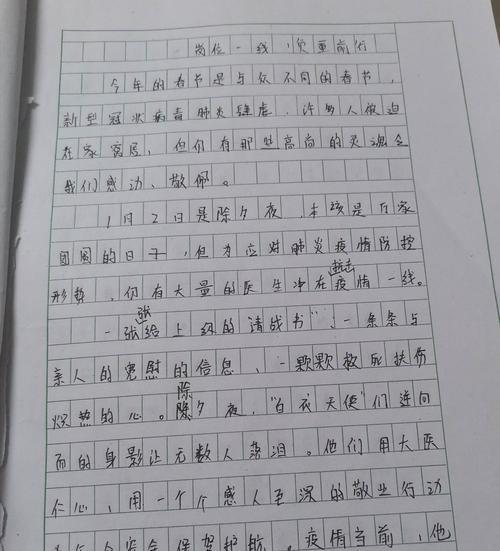 岗位一线，负重前行
今年的春节是与众不同的春节，
新型冠状病毒肺炎肆虐，许多人被迫
在家窝居，但仍有那些高尚的灵魂令
我们感动、敬佩。
1月2日是除夕夜，本该是万家
团圆的日子，但为应对肺炎疫情防控
形势，仍有大量的医生冲在疫情一线。
一张给上级的请战书"、一条条与
亲人的宽慰的信息、一颗颗救死扶伤
热的心。除夕夜，"白衣天使"们逆向
而的身影让无数人落泪。他们用大医
仁心，用一个个感人至深的敬业行动
安全保驾护航。疫情当前，他